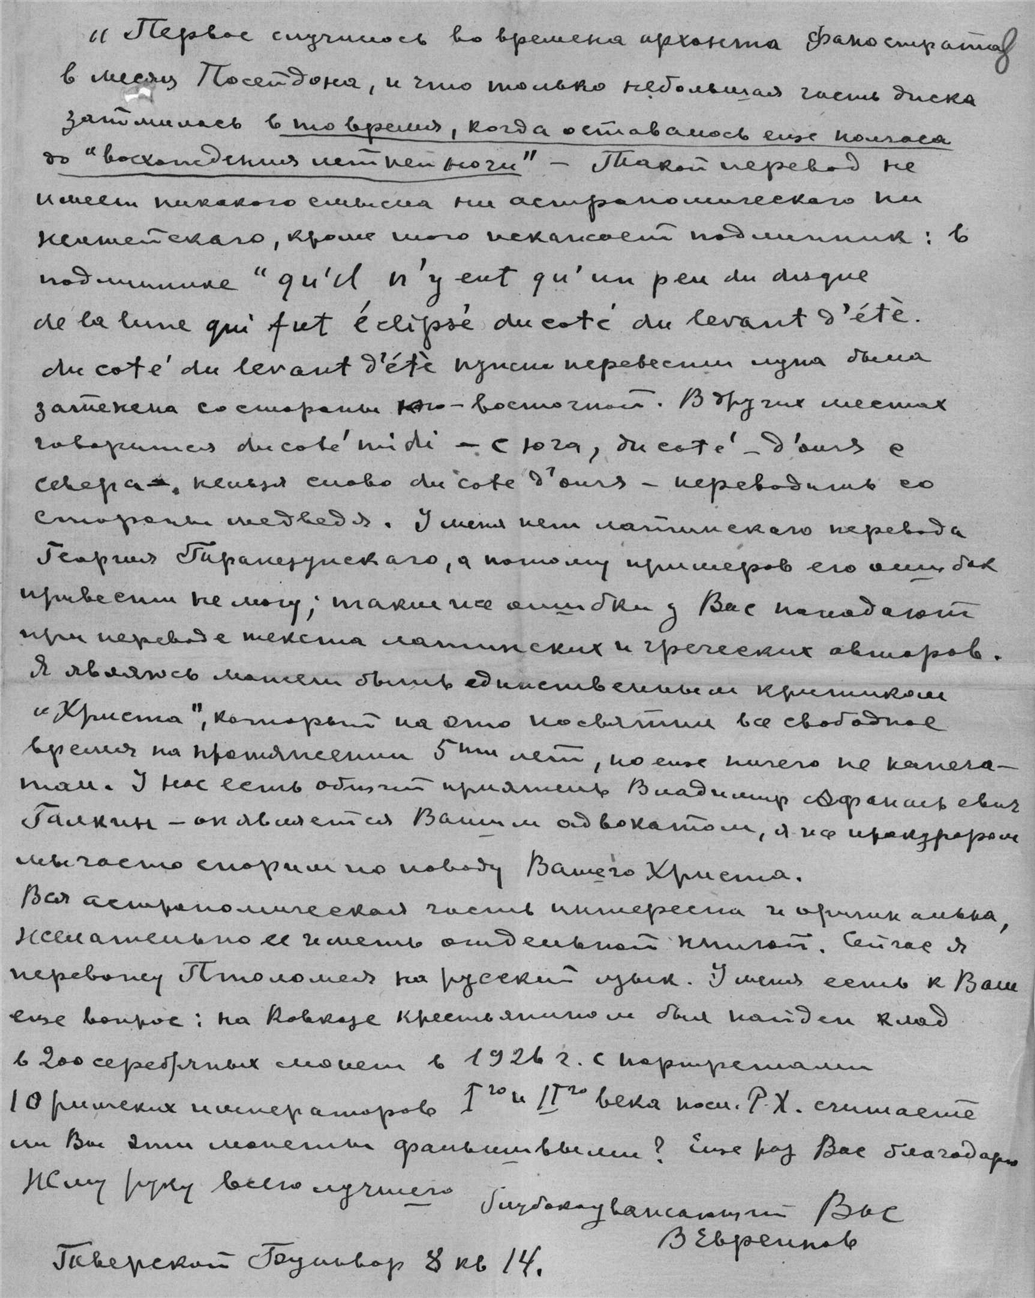 „ Первое случилось во времена архонта Фаностратa
8
в месяц Посейдона, и что только небольшая часть диска
затмилась в то время, когда оставалось еще полчаса
до "восхождения летней ночи" – Такой перевод не
имеет никакого смысла ни астрономического ни
житейскаго, кроме того искажает подлинник: в
подлиннике "qu'il n'y eut qu'un peu du disque
de la lune qui fut éclipsé du coté du levant d'étè.
du coté du levant d'étè нужно перевести луна была
затенена со стороны юго-восточной. В других местах
говорится du coté midi – с юга, du coté – d'ours с
севера. нельзя слово du cote d'ours – переводить со
стороны медведя. У меня нет латинскаго перевода
Георгия Трапезунскаго, а потому примеров его ошибок
привести не могу; такие же ошибки у Вас попадают
при переводе текста латинских и греческих авторов.
Я являюсь может быть единственным критиком
„Христа", который на это посвятил все свободное
время на протяжении 5ти лет, но еще ничего не напеча-
тал. У нас есть общий приятель Владимир Афанасьевич
Галкин – он является Вашим адвокатом, я же прокурором
мы часто спорим по поводу Вашего Христа.
Вся астрономическая часть интересна и оригинальна,
желательно ее иметь отдельной книгой. Сейчас я
перевожу Птоломея на русский язык. У меня есть к Вам
еще вопрос: на Кавказе крестьянином был найден клад
в 200 серебряных монет в 1926 г. с портретами
10 римских императоров Iго и IIго века посл. Р.Х. считаете
ли Вы эти монеты фальшивыми? Еще раз Вас благодарю
Жму руку всего лучшего
Глубокоуважающий Вас
В Евреинов
Тверской Бульвар 8 кв 14.